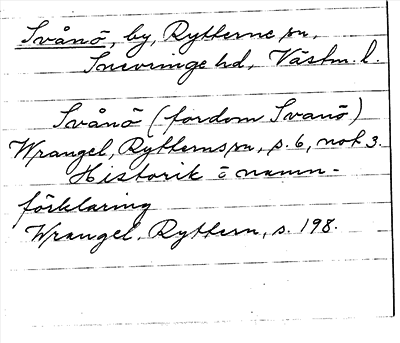 Svånö, by, Rytterne sn,
Snevringe hd, Västm. l.
Svånö (fordom Svanö)
Wrangel, Rytterns sn, s. 6, not 3.
Historik o namn-
förklaring
Wrangel. Ryttern, s. 198.